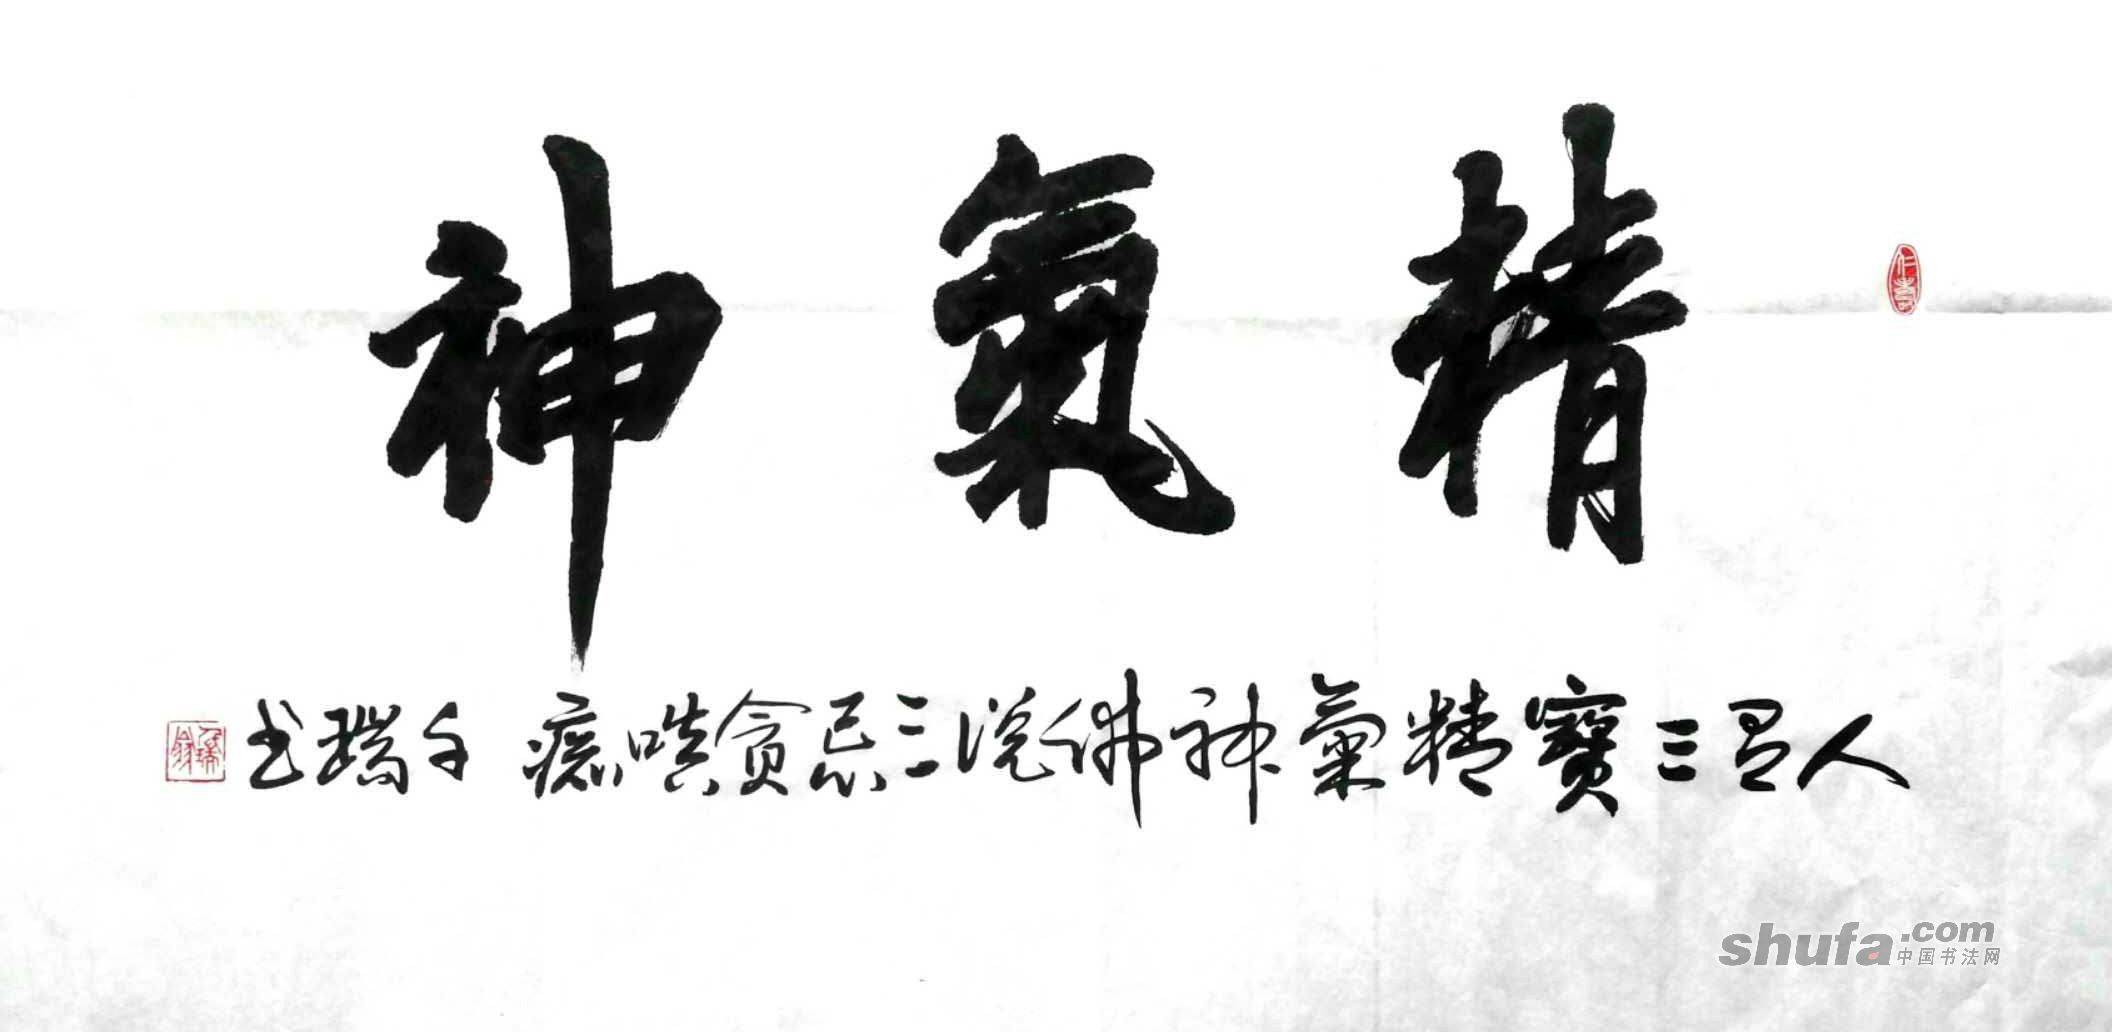 精氣神
人有三寶精氣神佛说三忌貪嗔痴 千瑞书
仁寿
shufa.com
中国书法网